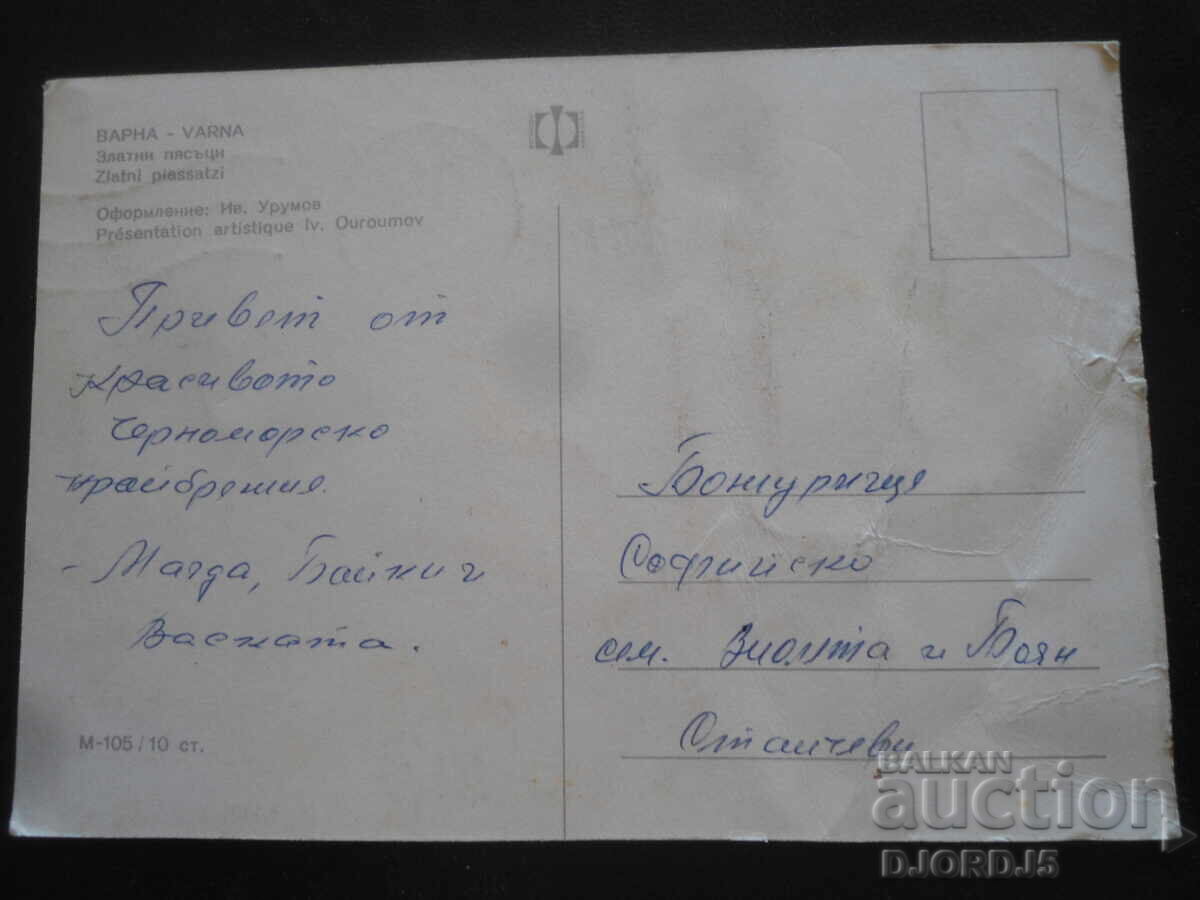 ВАРНА - VARNA
Златни пясъци
Zlatni piassatzi
Оформление: Ив. Урумов
Présentation artistique Iv. Ouroumov
Привет от
красивото
Черноморско
крайбрежие.
- Магда, Бойки и
Васката.
М-105/10 ст.
Божурище
Софийско
сем. Виолета и Боян
Станчеви
BALKAN
auction
DJORDJ5